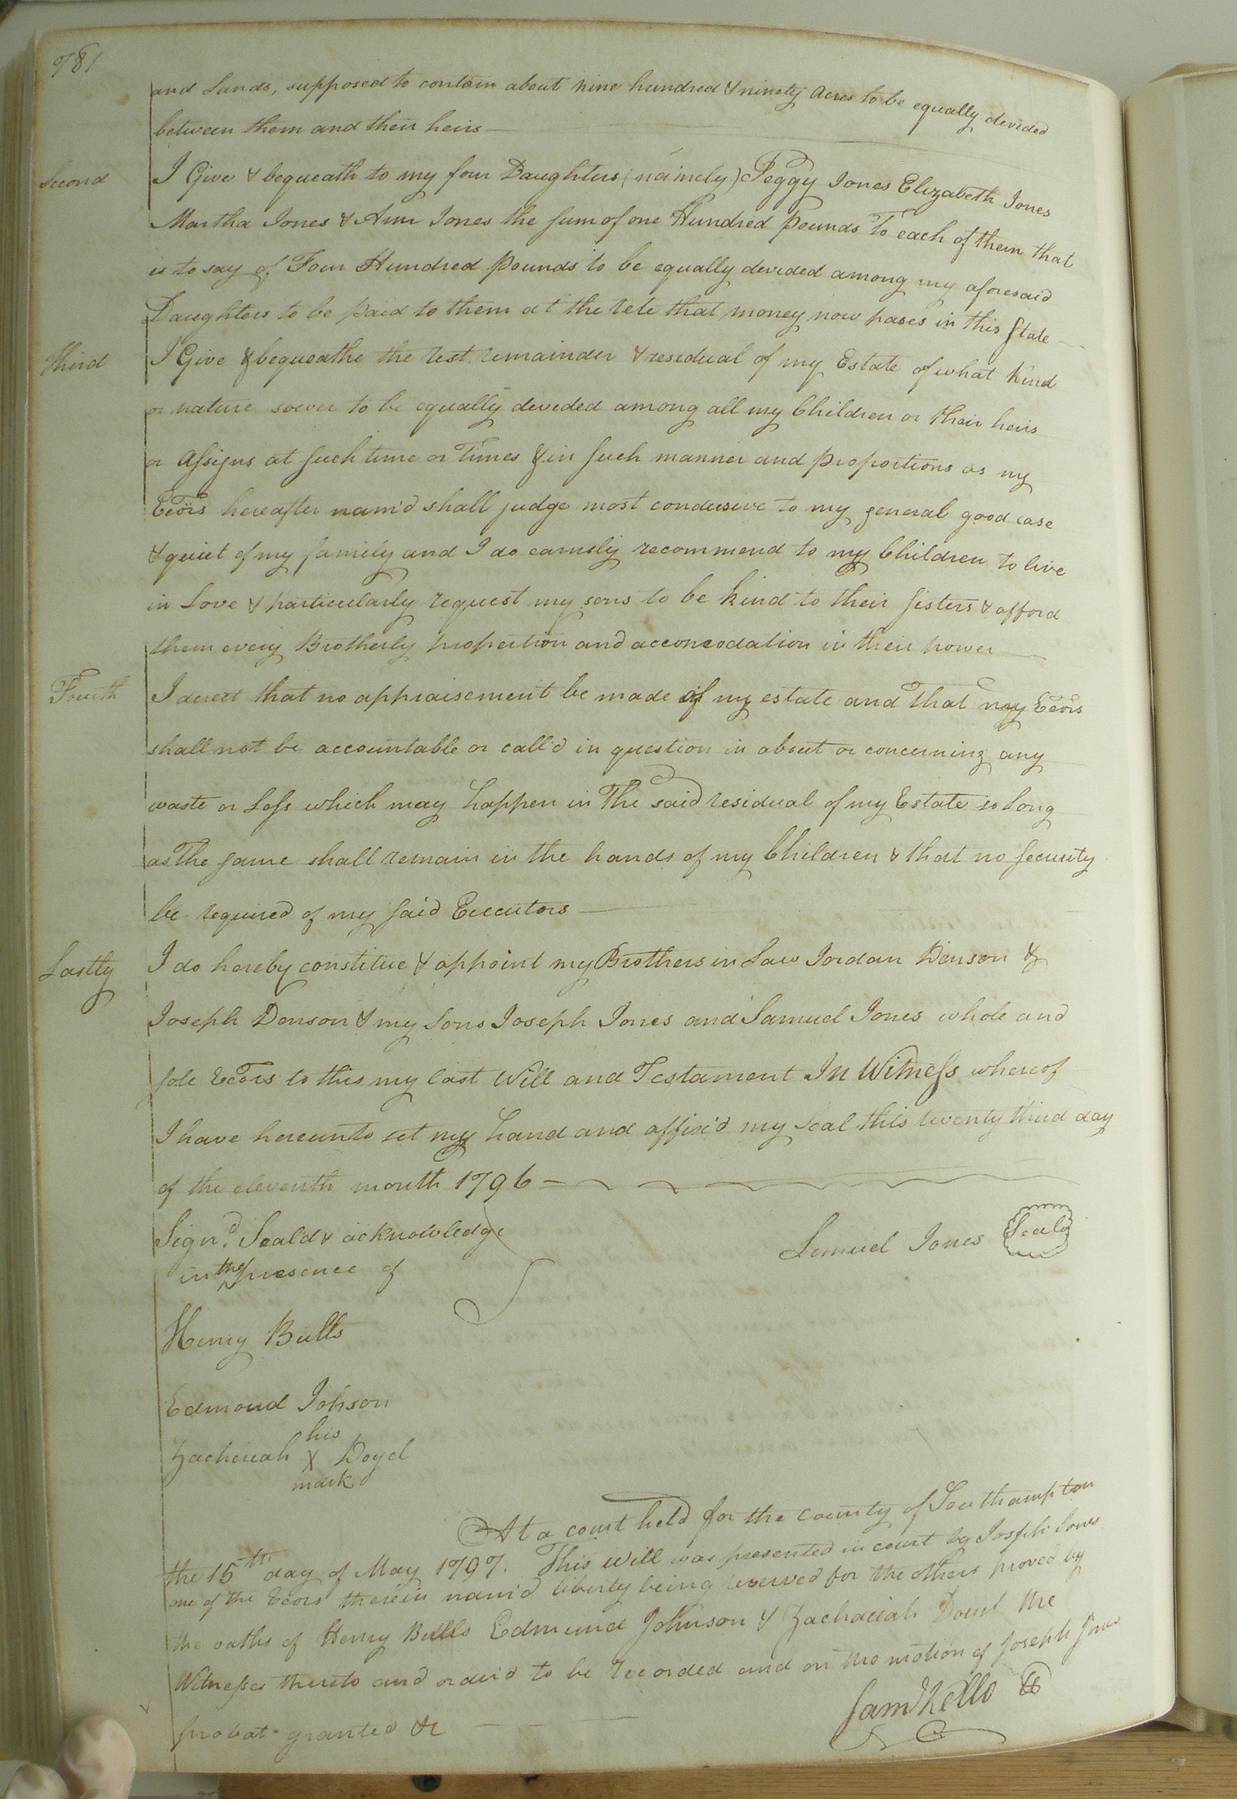 781
and Lands, supposed to contain about nine hundred & ninety Acres to be equally devided
between them and their heirs
Second I Give & bequeath to my four Daughters (naimely) Peggy Jones Elizabeth Jones
Martha Jones & Ann Jones the sum of one Hundred pounds To each of them that
is to say of Four Hundred pounds to be equally devided among my aforesaid
Daughters to be paid to them at the rate that money now pases in this State
Third I Give & bequeathe the rest remainder & resedual of my Estate of what kind
or nature soever to be equally devided among all my Children or their heirs
or Assigns at such time or Times & in such manner and proportions as my
Exors hereafter nam'd shall judge most conducive to my general good ease
& quiet of my family and I do earnsly recommend to my Children to live
in Love & particularly request my sons to be kind to their sisters & afford
them every Brotherly and accomodation in their power
Fourth I derect that no appraisement be made of my estate and That my Exors
shall not be accountable or call'd in question in about or concerning any
waste or Loss which may happen in The said residual of my Estate so Long
as The same shall remain in the hands of my Children & that no security
be required of my said Executors
Lastly I do hereby constitue & appoint my Brothers in Law Jordan Denson &
Joseph Denson & my Sons Joseph Jones and Samuel Jones whole and
sole Exors to this my last Will and Testament In Witness whereof
I have hereunto set my hand and affix'd my Seal this twenty third day
of the eleventh month 1796
Sign'd Seald & acknowledge
in the presence of
Samuel Jones Seal
Henry Butts
Edmond Johson
his
Zacheriah X Doyel
mark
At a court held for the county of Southampton
the 15th day of May 1797. This will was presented in court by Joseph Jones
one of the Exors therein nam'd liberty being reserved for the others proved by
the oaths of Henry Butts Edmund Johnson & Zachariah the
Witnesses thereto and order'd to be recorded and on the motion of Joseph Jones
probat granted &c
Sam Kello CC